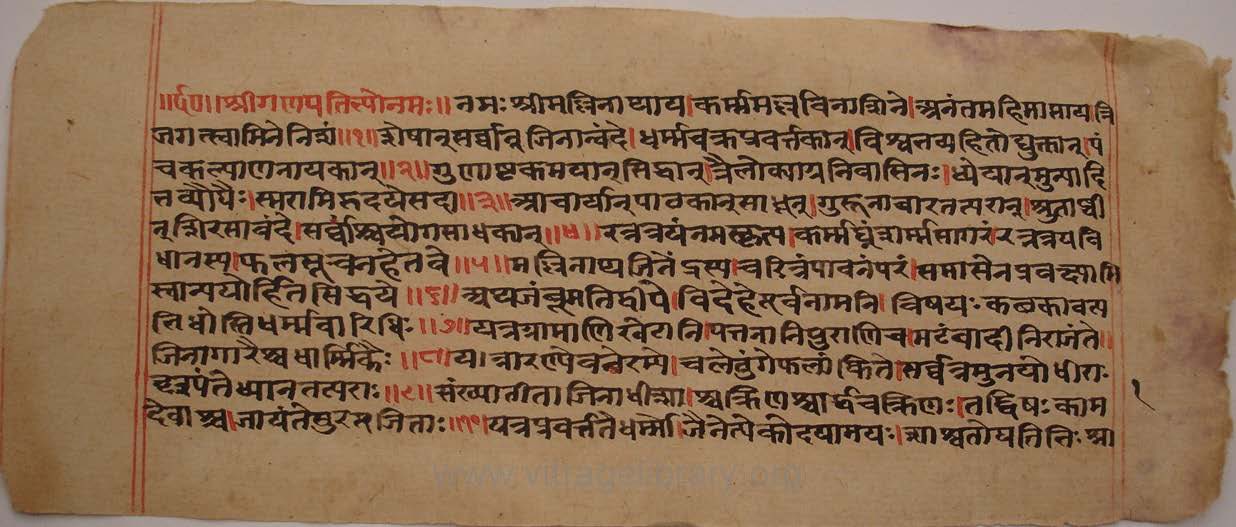 ॥ર્દ૦॥श्रीगणपतिभ्योनमः॥ नमः श्रीमल्लिनाथाय।कर्म्ममल्लविनाशिने।अनंतमहिमाप्ताय।त्रि
जगत्स्वामिनेनिशं॥१॥शेषान्सर्व्वान् जिनान्वंदे।धर्म्मचक्रप्रवर्त्तकान्।विश्वभव्यहितोद्युक्तान्।पं
चकल्याणनायकान्॥२॥गुणाष्टकमयान्सिद्धान्।त्रैलोक्याग्रनिवासिनः।ध्येयान्मुन्यादि
भव्यौघैः।स्मरामिहृदयेसदा॥३॥आचार्यान्पाठकान्साधून्।गुरूनाचारतत्परान्।श्रुताब्धी
न्शिरसावंदे।सर्वांश्चयोगसाधकान्॥४॥रत्नत्रयंनमस्कृत्य।कर्म्मघ्नंशर्म्मसागरं।रत्नत्रयवि
धानस्य।फलसूचनहेतवे॥५॥मल्लिनाथजिनेंद्रस्य।चरित्रंपावनंपरं।समासेनप्रवक्ष्यामि
स्वान्ययोर्हितसिद्धये॥६॥अथजंबूमतिद्वीपे।विदेहेपूर्वनामनि।विषयः कछकावत्य
भिधोस्तिधर्म्मवारिधिः॥७॥यत्रग्रामाणिखेटानि।पत्तनानिपुराणिच।मटंबादीनिराजंते॥
जिनागारैश्चधार्म्मिकैः॥८॥यत्रारण्येवनेरम्ये।चलेतुंगेफलांकिते।सर्व्वत्रमुनयोधीराः
दृश्यंतेध्यानतत्पराः॥९॥संख्यातीताजिनाधीशा।श्चक्रिणश्चार्द्धचक्रिणः।तद्विषः काम
देवाश्च।जायंतेसुरपूजिताः॥१०॥यत्रप्रवर्त्ततेधर्म्मो।जैनेत्येकोदयामयः।शाश्वतोयतिभिः श्रा
१
www.vitragelibrary.org